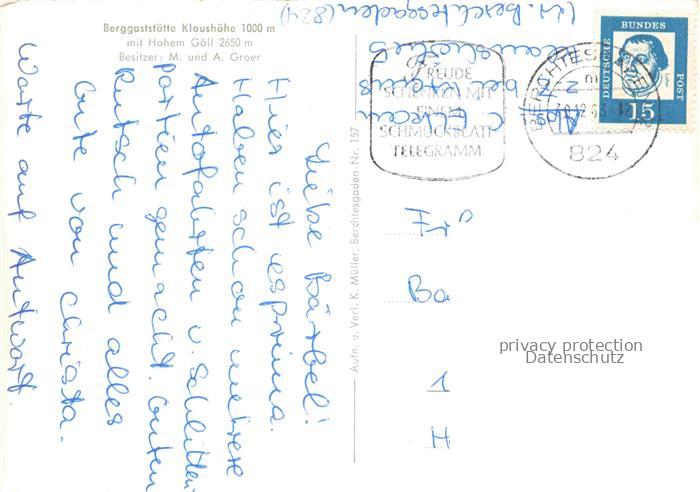 Berggaststätte Klaushöhe 1000 m
mit Hohem Göll 2650 m
Besitzer: M. und A. Groer
Liebe Bärbel!
Hier ist es prima.
Haben schon mehrere
Autofahrten u. Schlitten-
partien gemacht. Guten
Rutsch und alles
Gute von Christa.
Warte auf Antwort.
Aufn. u. Verl. K. Müller, Berchtesgaden. Nr. 157
FREUDE
SCHENKEN MIT
EINEM
SCHMUCKBLATT-
TELEGRAMM
BERCHTESGADEN
824
DEUTSCHE
BUNDES
POST
15
Abs.
z. Z. bei
(Kr. Berchtesgaden (824)
Fr
Ba
1
H
privacy protection
Datenschutz